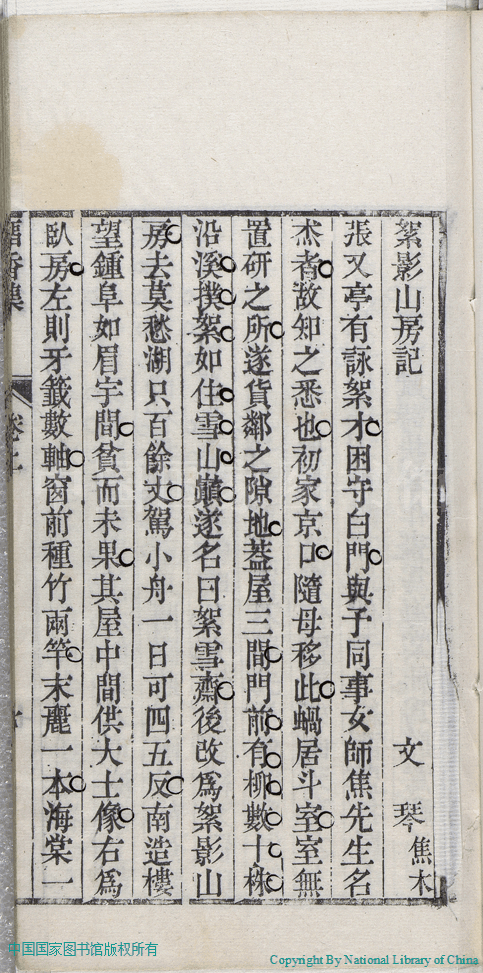 絮影山房記 文琴焦木
張又亭有詠絮才困守白門與予同事女師焦先生名
杰者故知之悉也初家京口隨母移此蝸居斗室室無
置研之所遂貨鄰之隙地葢屋三間門前有柳數十株
沿溪撲絮如住雪山巔遂名曰絮雪齋後改為絮影山
房去莫愁湖只百餘丈駕小舟一日可四五反南造樓
望鍾阜如眉宇間貧而未果其屋中間供大士像右為
臥房左則牙籤數軸窗前種竹兩竿木麗一本海棠一
香集
卷上
中国国家图书馆版权所有
Copyright By National Library of China